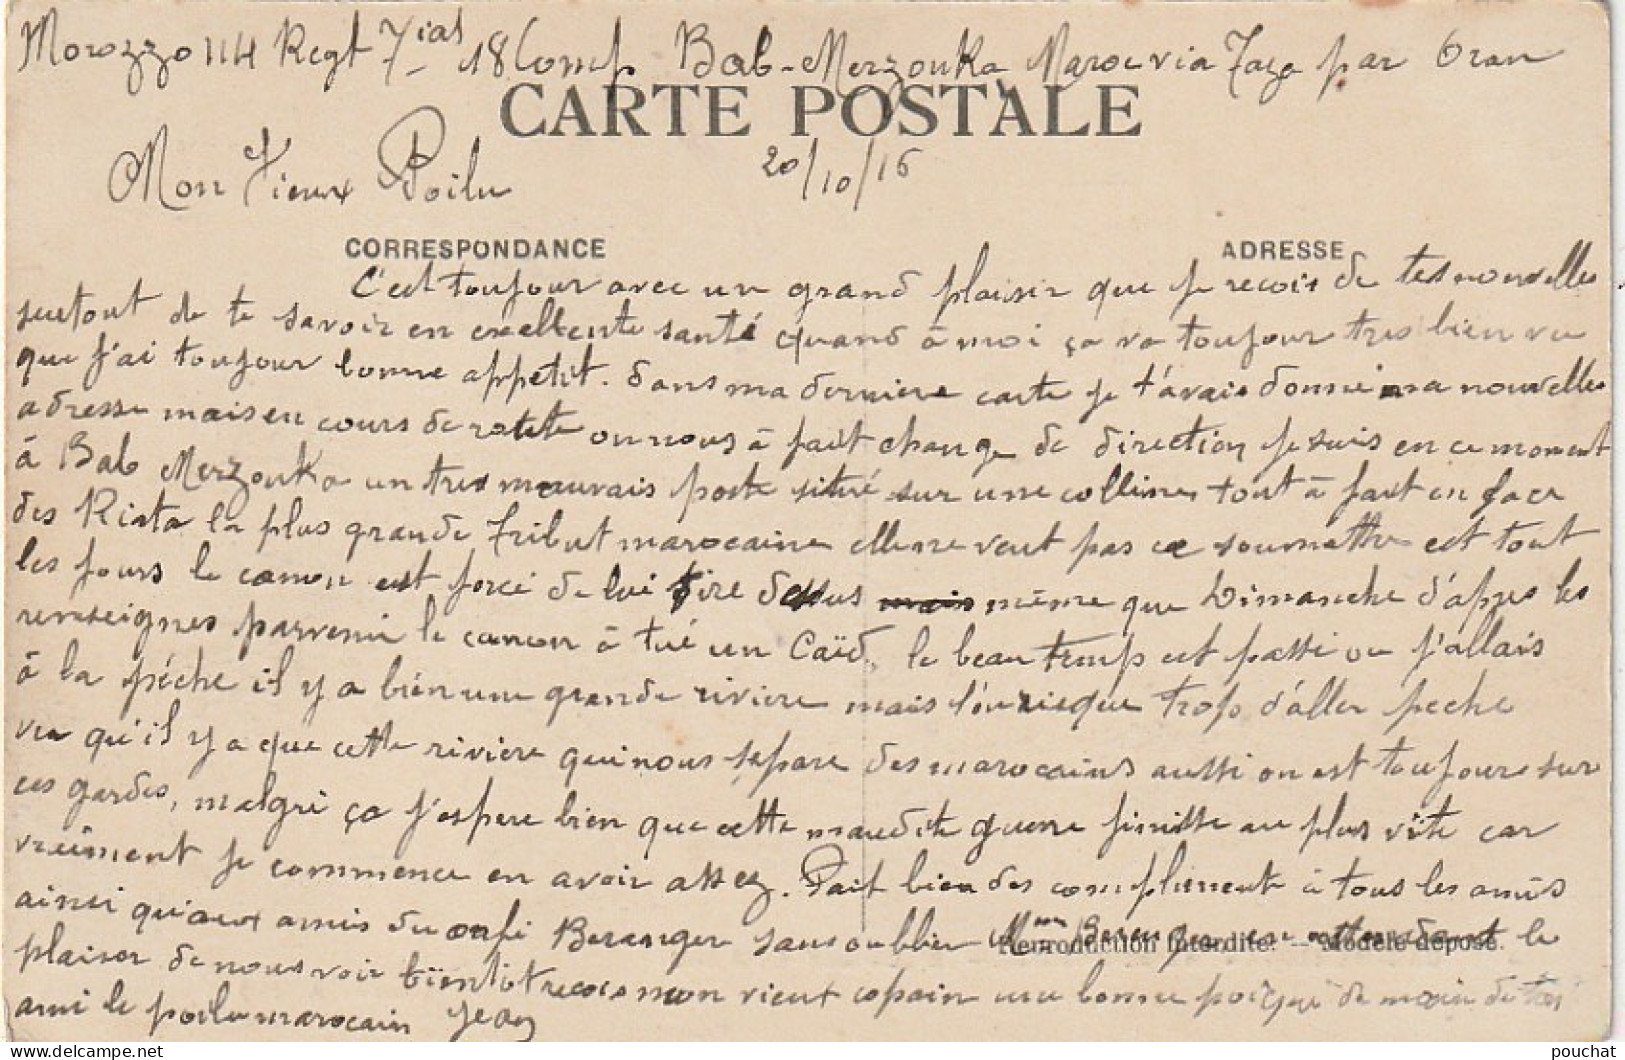 Morozzo 114 Regt Tial 18 Comp Bab-Merzouka Maroc via Taza par Oran
CARTE POSTALE
20/10/16
Mon Vieux Poilu
CORRESPONDANCE
ADRESSE
C'est toujour avec un grand plaisir que je recois de tes nouvelles
surtout de te savoir en excellente santé quand à moi ça va toujour tres bien vu
que j'ai toujour bonne appetit. dans ma derniere carte je t'avais donné ma nouvelles
adresse mais en cours de route on nous à fait change de direction je suis en ce moment
à Bab Merzouka un tres mauvais poste situé sur une colline tout à fait en face
des Riata la plus grande tribut marocaine elle ne veut pas ce soumettre est tout
les jours le canon est forcé de lui tire dessus mais même que Dimanche d'apres les
renseignes parvenu le canon à tué un Caïd, le beau temps est passé ou j'allais
à la pêche il y a bien une grande riviere mais l'on risque trop d'aller peche
vu qu'il y a que cette riviere qui nous separe des marocains aussi on est toujours sur
ces gardes, malgré ça j'espere bien que cette maudite guerre finisse au plus vite car
vraiment je commence en avoir assez. Fait bien des compliment à tous les amis
ainsi qu'aux amis du café Beranger sans oublier Mme Beranger en attendant le
Reproduction Interdite. — Modèle déposé.
plaisir de nous voir bientôt recois mon vieux copain une bonne poigné de main de ton
ami le poilu marocain Jean
pouchat